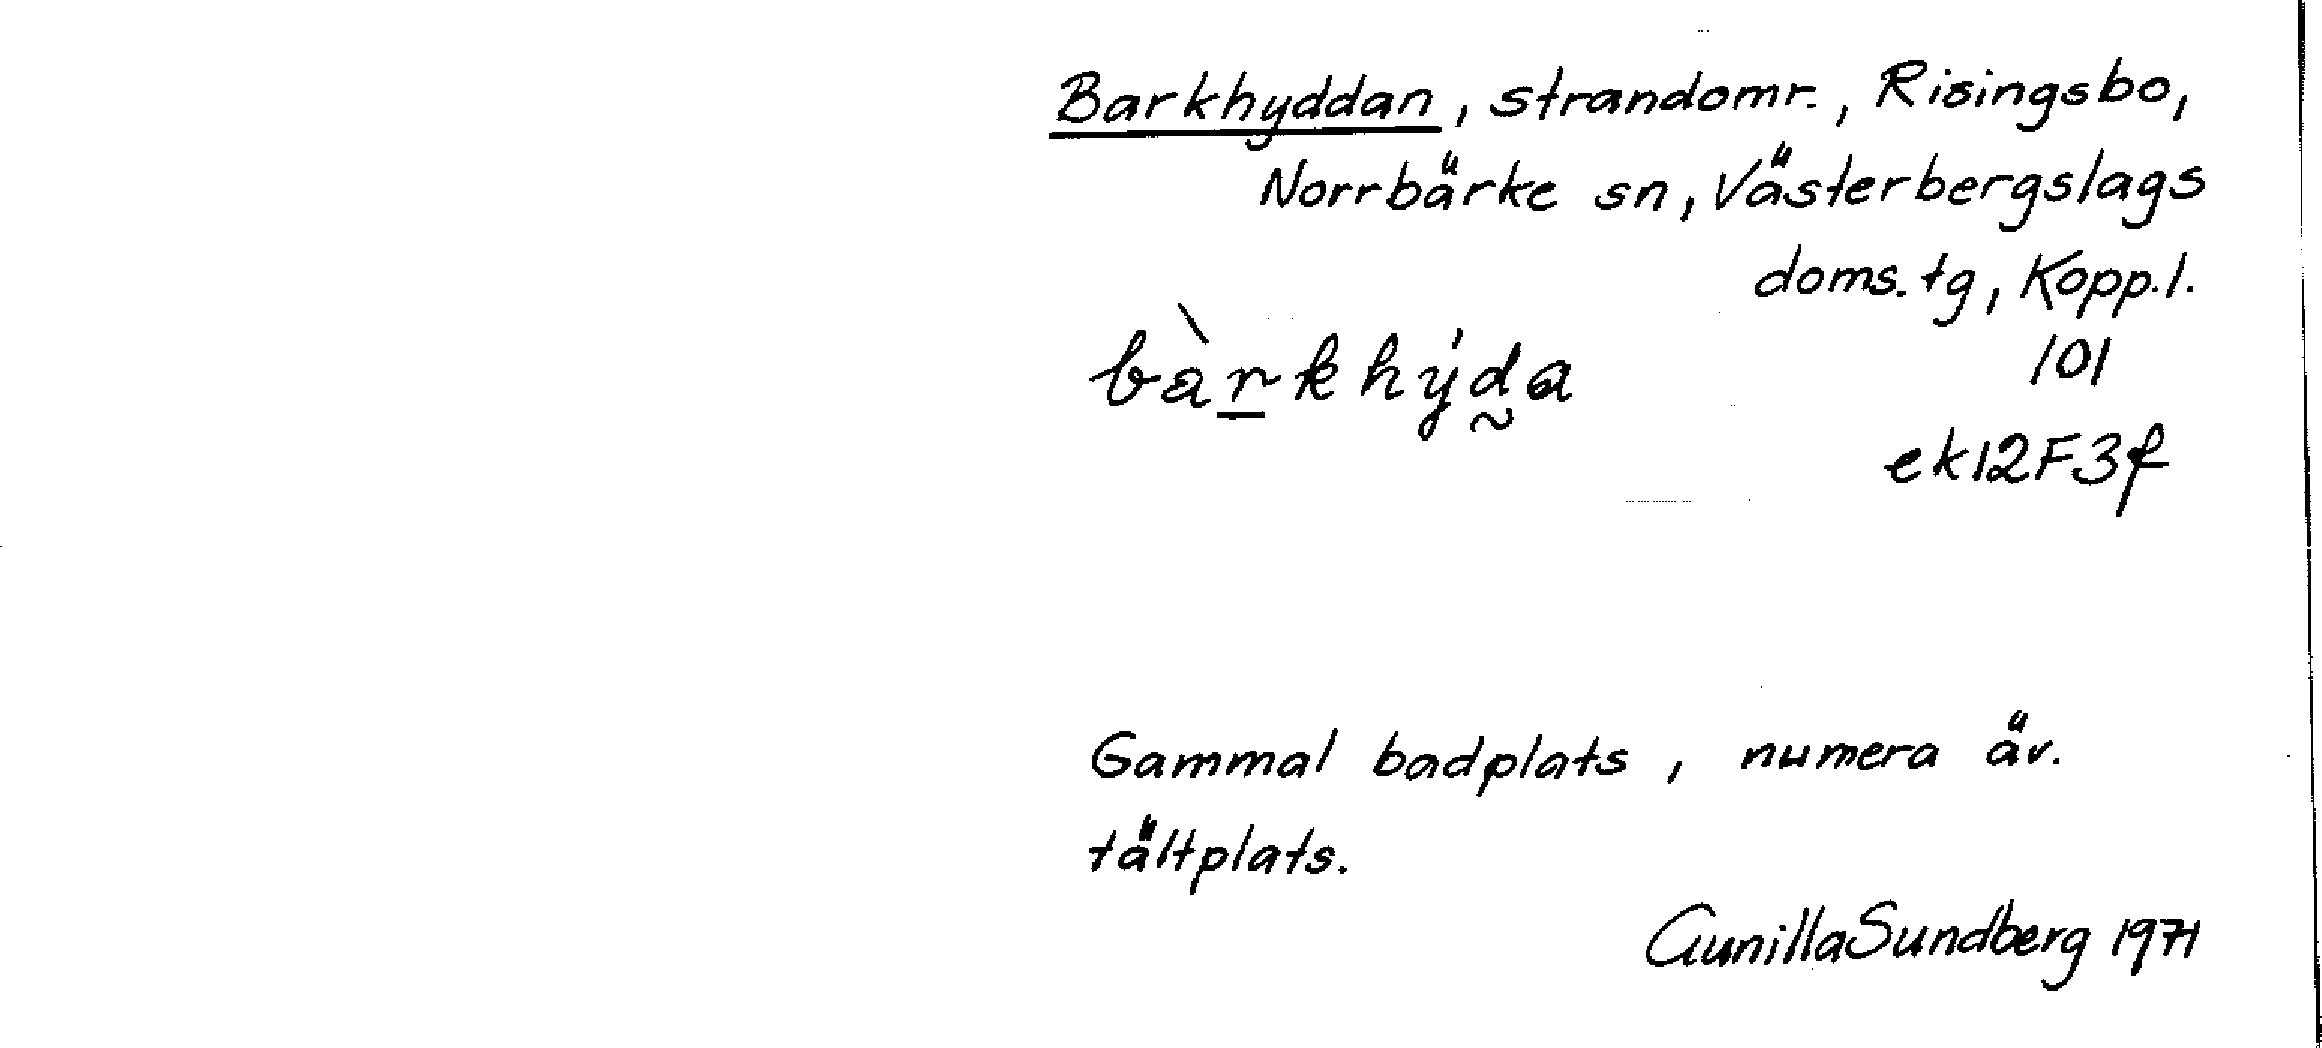 Barkhyddan, strandomr., Risingsbo,
Norrbärke sn, Västerbergslags
doms.tg, Kopp.l.
bàr̲khýd̰a
101
ek12F3f
Gammal badplats, numera äv.
tältplats.
Gunilla Sundberg 1971